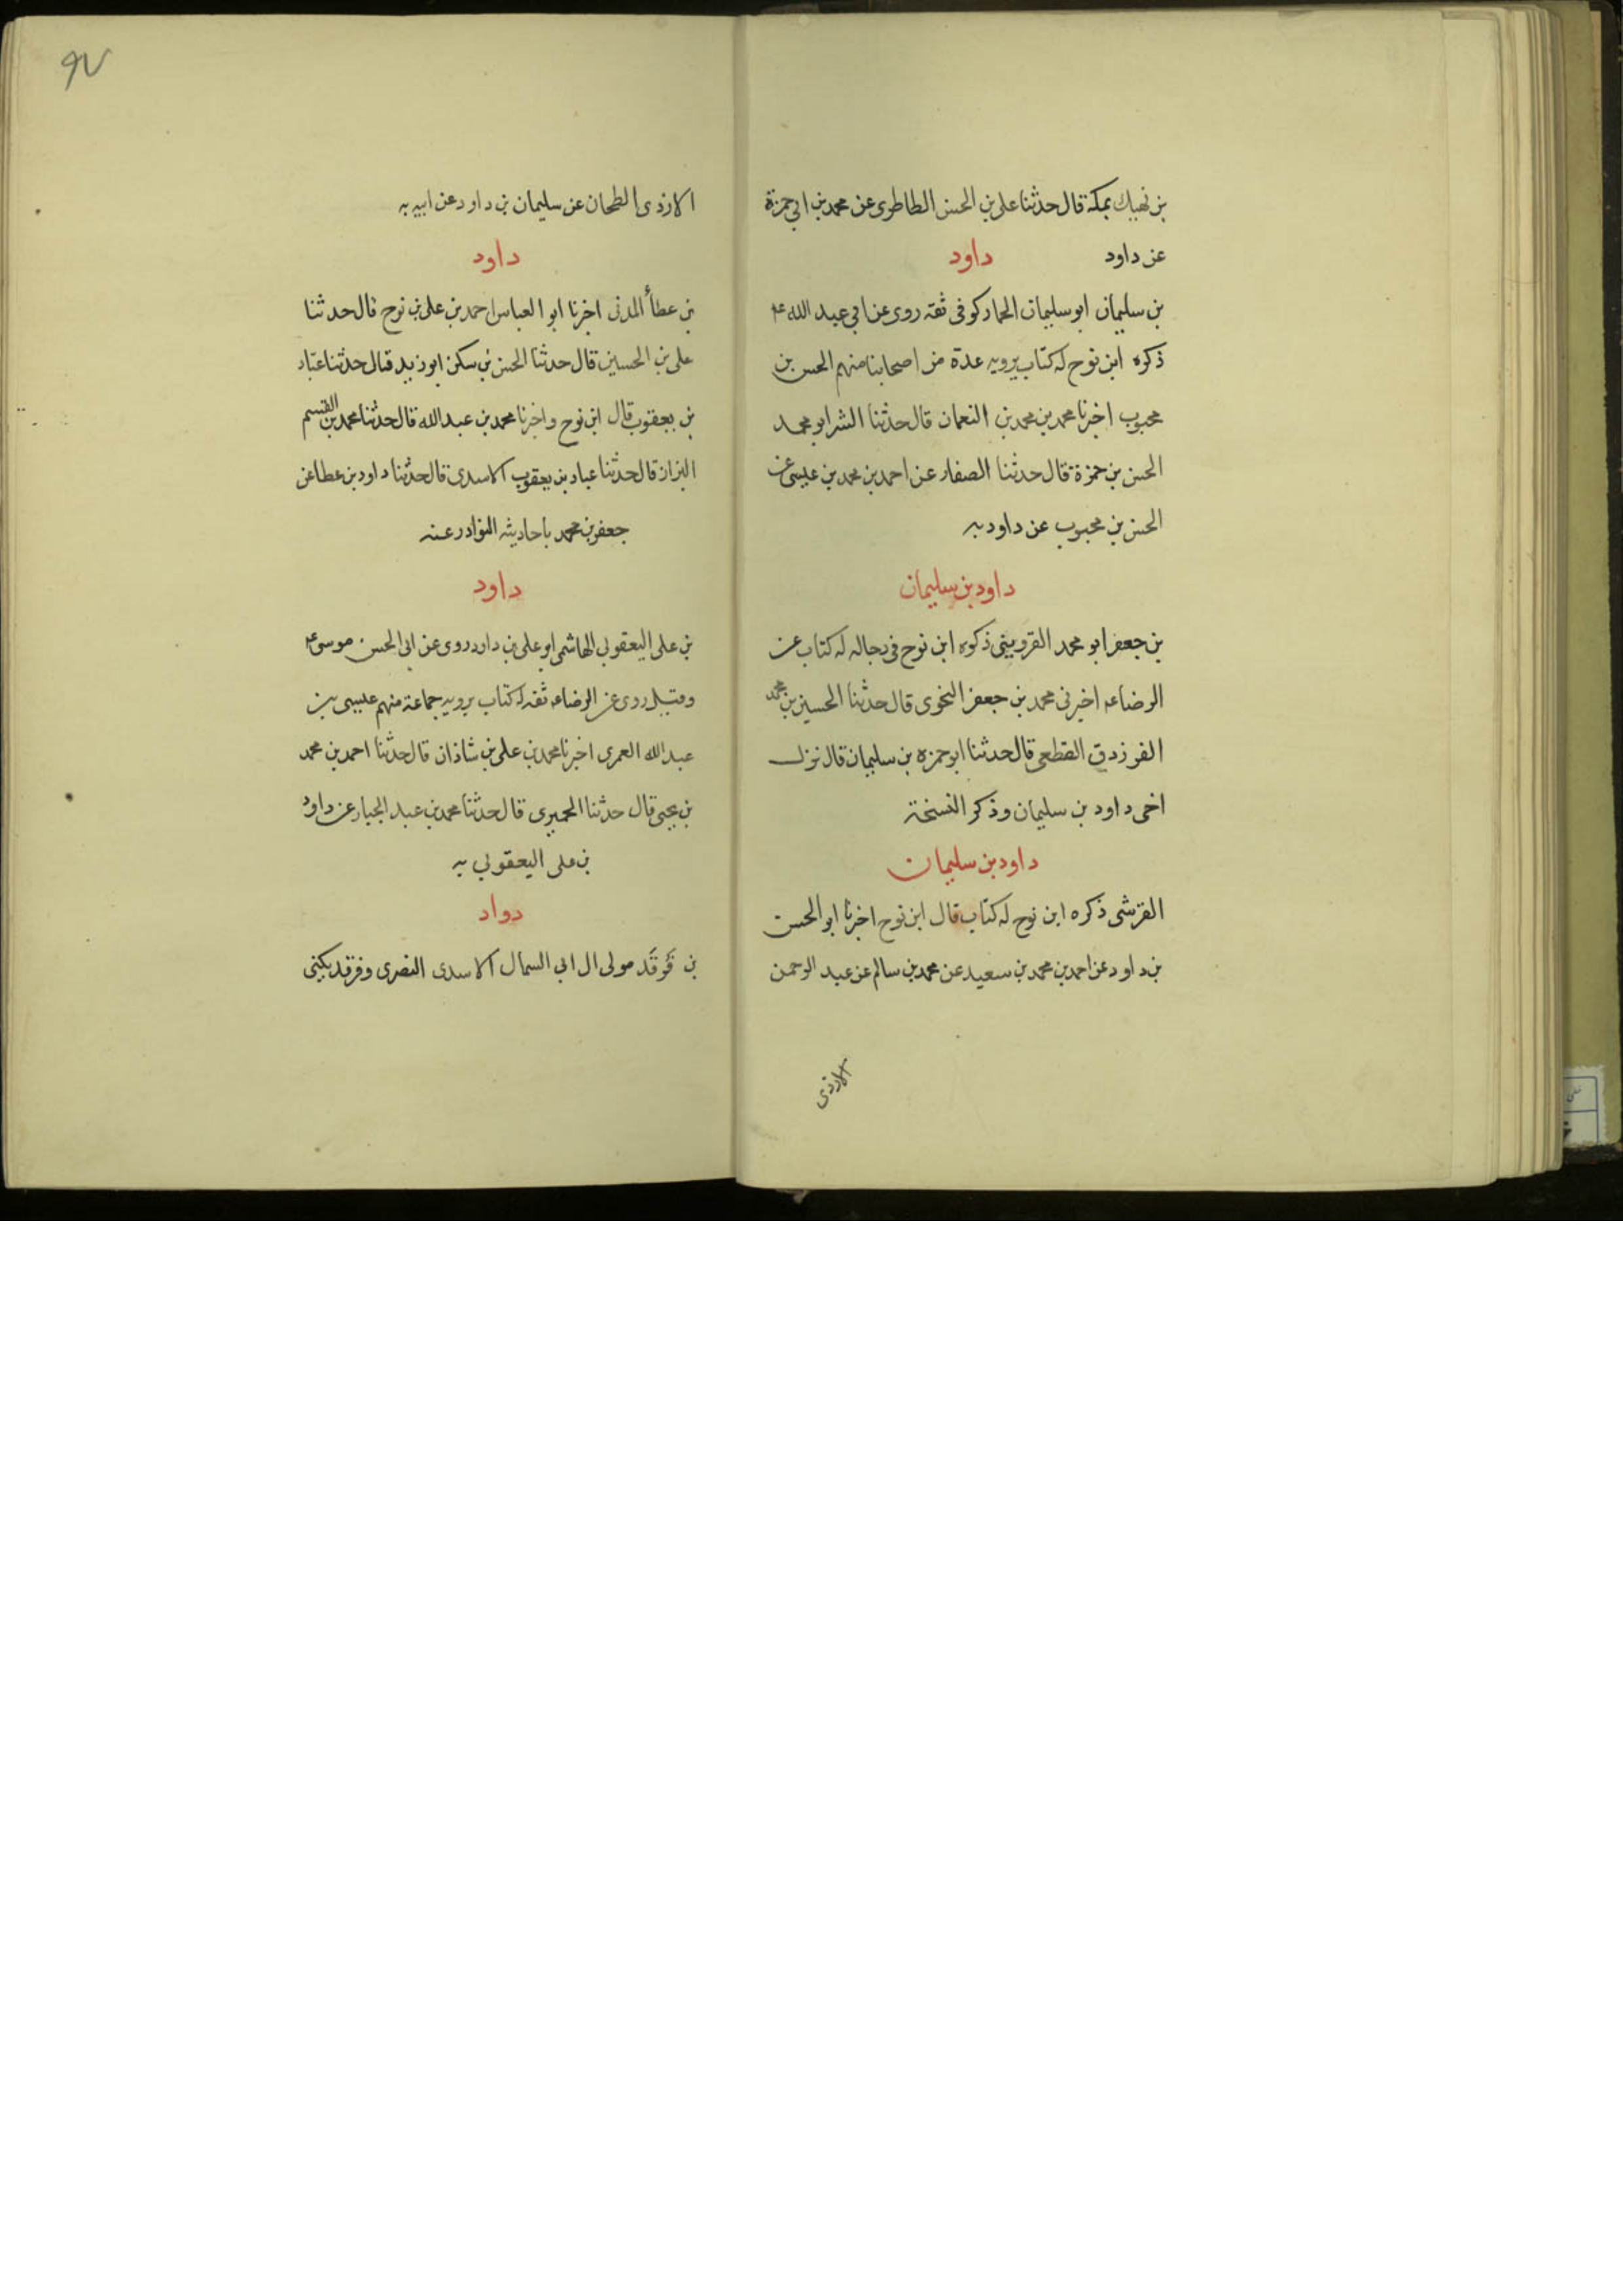 بن نهيك بمكة قال حدثنا على بن الحسن الطاطرى عن محمد بن ابى حمزة
عن داود داود
بن سليمان ابو سليمان الحمار كوفى ثقة روى عن ابى عبد الله ع
ذكره ابن نوح له كتاب يرويه عدة من اصحابنا منهم الحسن بن
محبوب اخبرنا محمد بن محمد بن النعمان قال حدثنا الشر ابو محمد
الحسن بن حمزة قال حدثنا الصفار عن احمد بن محمد بن عيسى عن
الحسن بن محبوب عن داود به
داود بن سليمان
بن جعفر ابو محمد القزوينى ذكره ابن نوح فى رجاله له كتاب عن
الرضا ع اخبرنى محمد بن جعفر النحوى قال حدثنا الحسين بن محمد
الفرزدق القطعى قال حدثنا ابو حمزه بن سليمان قال نزل
اخى داود بن سليمان وذكر النسخة
داود بن سليمان
القرشى ذكره ابن نوح له كتاب قال ابن نوح اخبرنا ابو الحسن
بن داود عن احمد بن محمد بن سعيد عن محمد بن سالم عن عبد الرحمن
الازدى
الازدى الطحان عن سليمان بن داود عن ابيه به
داود
بن عطأ المدنى اخبرنا ابو العباس احمد بن على بن نوح قال حدثنا
على بن الحسين قال حدثنا الحسن بن سكن ابو زيد قال حدثنا عباد
بن يعقوب قال ابن نوح واخبرنا محمد بن عبد الله قال حدثنا محمد بن القسم
البزاز قال حدثنا عباد بن يعقوب الاسدى قال حدثنا داود بن عطا عن
جعفر بن محمد باحاديثه النوادر عنه
داود
بن على اليعقوبى الهاشمى ابو على بن داود روى عن ابى الحسن موسى ع
وقيل روى عن الرضا ع ثقه له كتاب يرويه جماعة منهم عيسى بن
عبد الله العمرى اخبرنا محمد بن على بن شاذان قال حدثنا احمد بن محمد
بن يحيى قال حدثنا الحميرى قال حدثنا محمد بن عبد الجبار عن داود
بن على اليعقوبى به
دواد
بن فَرقَد مولى ال ابى السمال الاسدى النصرى وفرقد يكنى